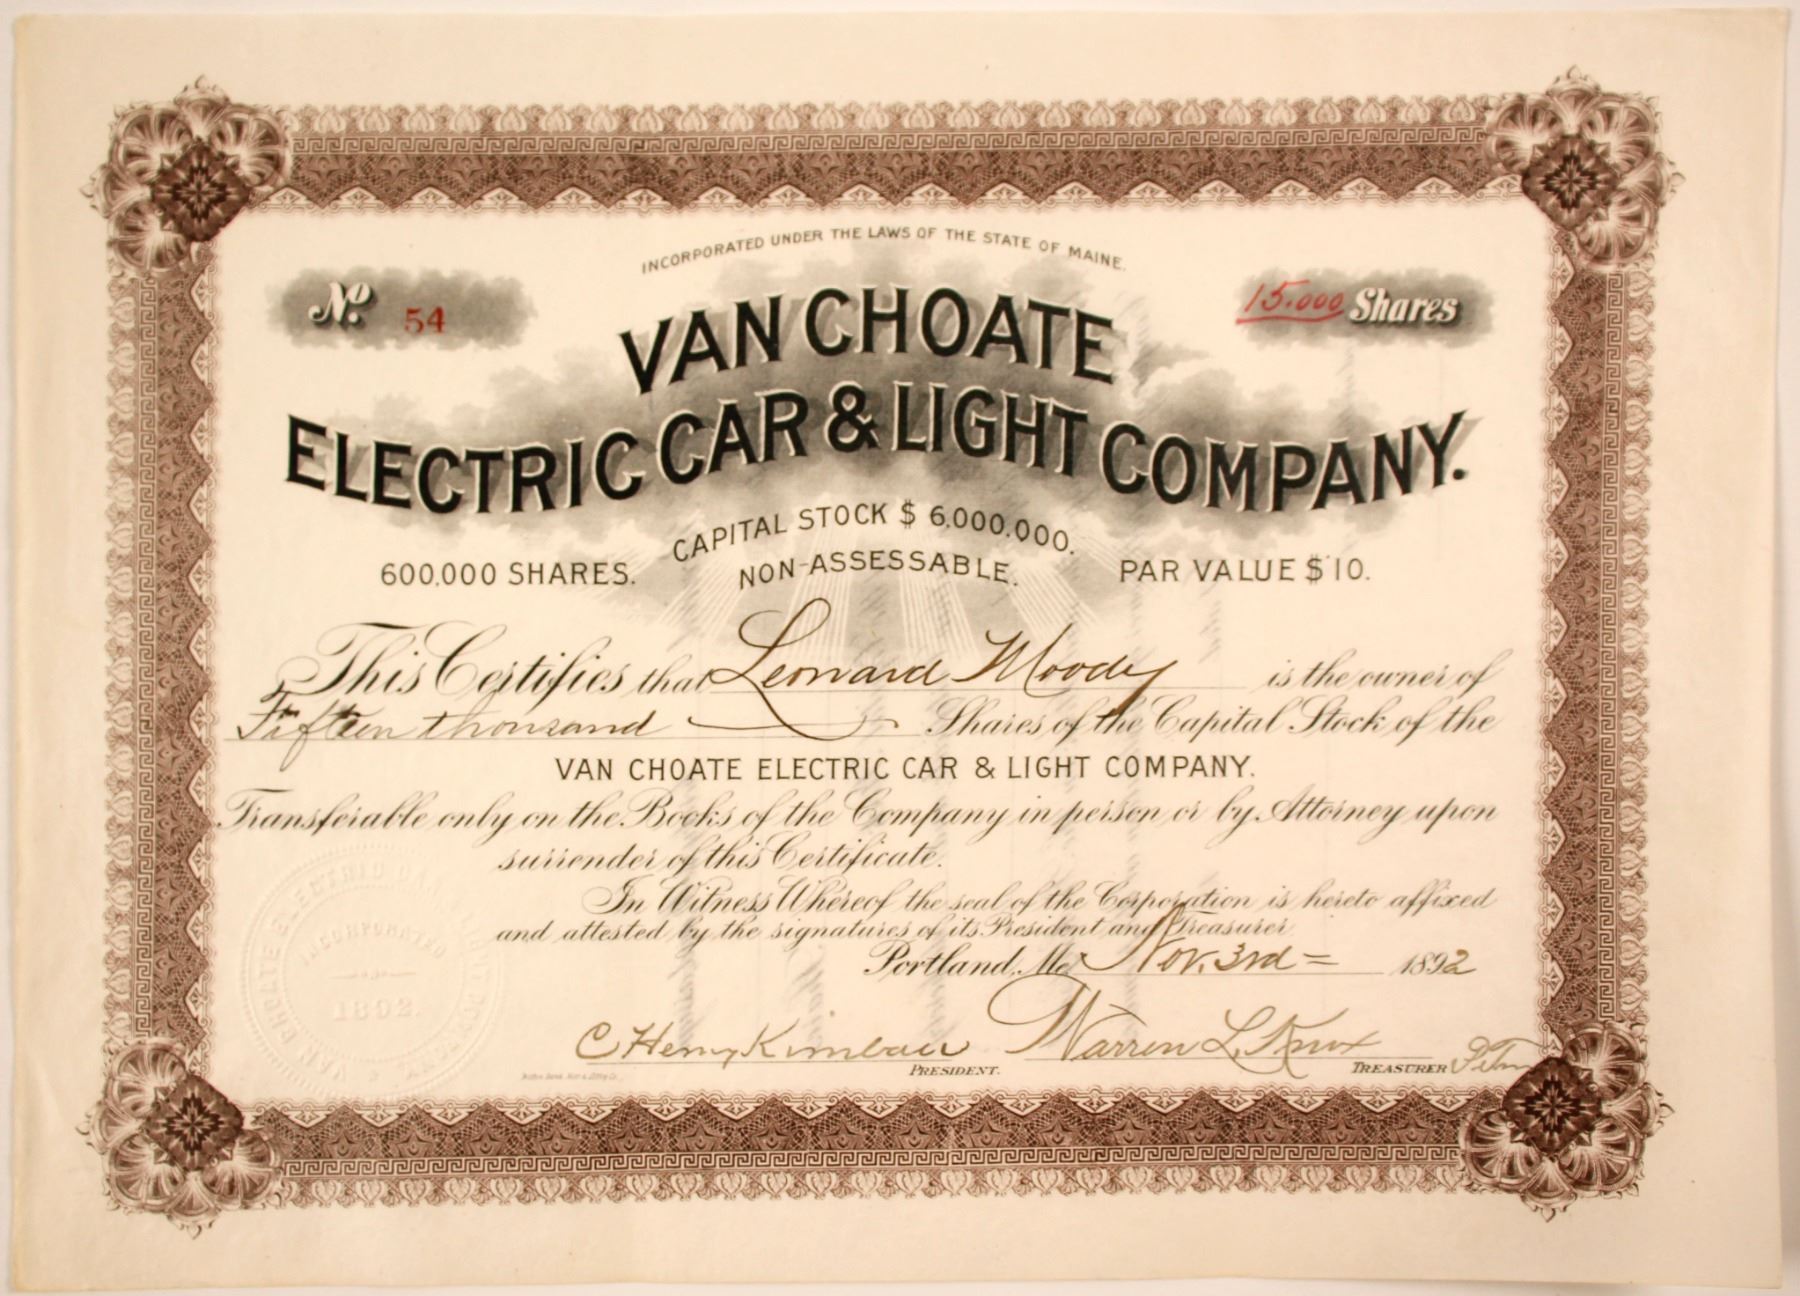 INCORPORATED UNDER THE LAWS OF THE STATE OF MAINE.
No. 54
15.000 Shares
VAN CHOATE
ELECTRIC CAR & LIGHT COMPANY.
CAPITAL STOCK $ 6,000,000.
600,000 SHARES. NON-ASSESSABLE. PAR VALUE $10.
This Certifies that Leonard Moody is the owner of
Fifteen thousand Shares of the Capital Stock of the
VAN CHOATE ELECTRIC CAR & LIGHT COMPANY.
Transferable only on the Books of the Company in person or by Attorney upon
surrender of this Certificate.
In Witness Whereof the seal of the Corporation is hereto affixed
and attested by the signatures of its President and Treasurer
Portland, Me. Nov. 3rd = 1892
C Henry Kimball Warren L. Knox
PRESIDENT. TREASURER
VAN CHOATE ELECTRIC CAR
INCORPORATED
1892.